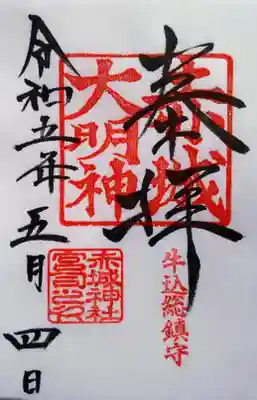 奉拝
赤城
大明神
牛込総鎮守
令和五年五月四日
赤城神社
宮司之印